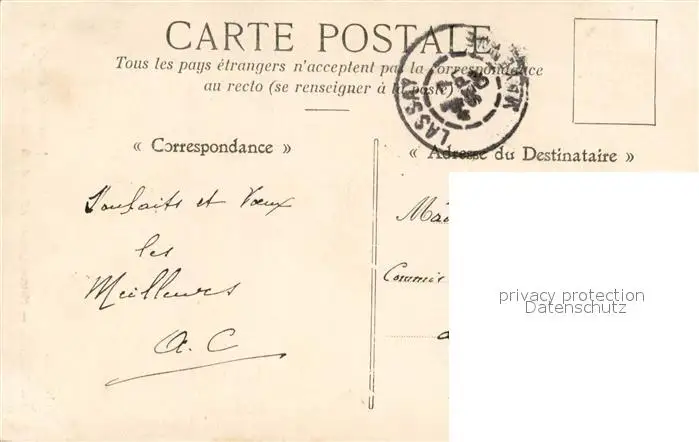 CARTE POSTALE
Tous les pays étrangers n'acceptent pas la correspondance
au recto (se renseigner à la poste)
LASSAY
« Correspondance »
« Adresse du Destinataire »
Souhaits et Vœux
les
Meilleurs
A. C
Commis
privacy protection
Datenschutz